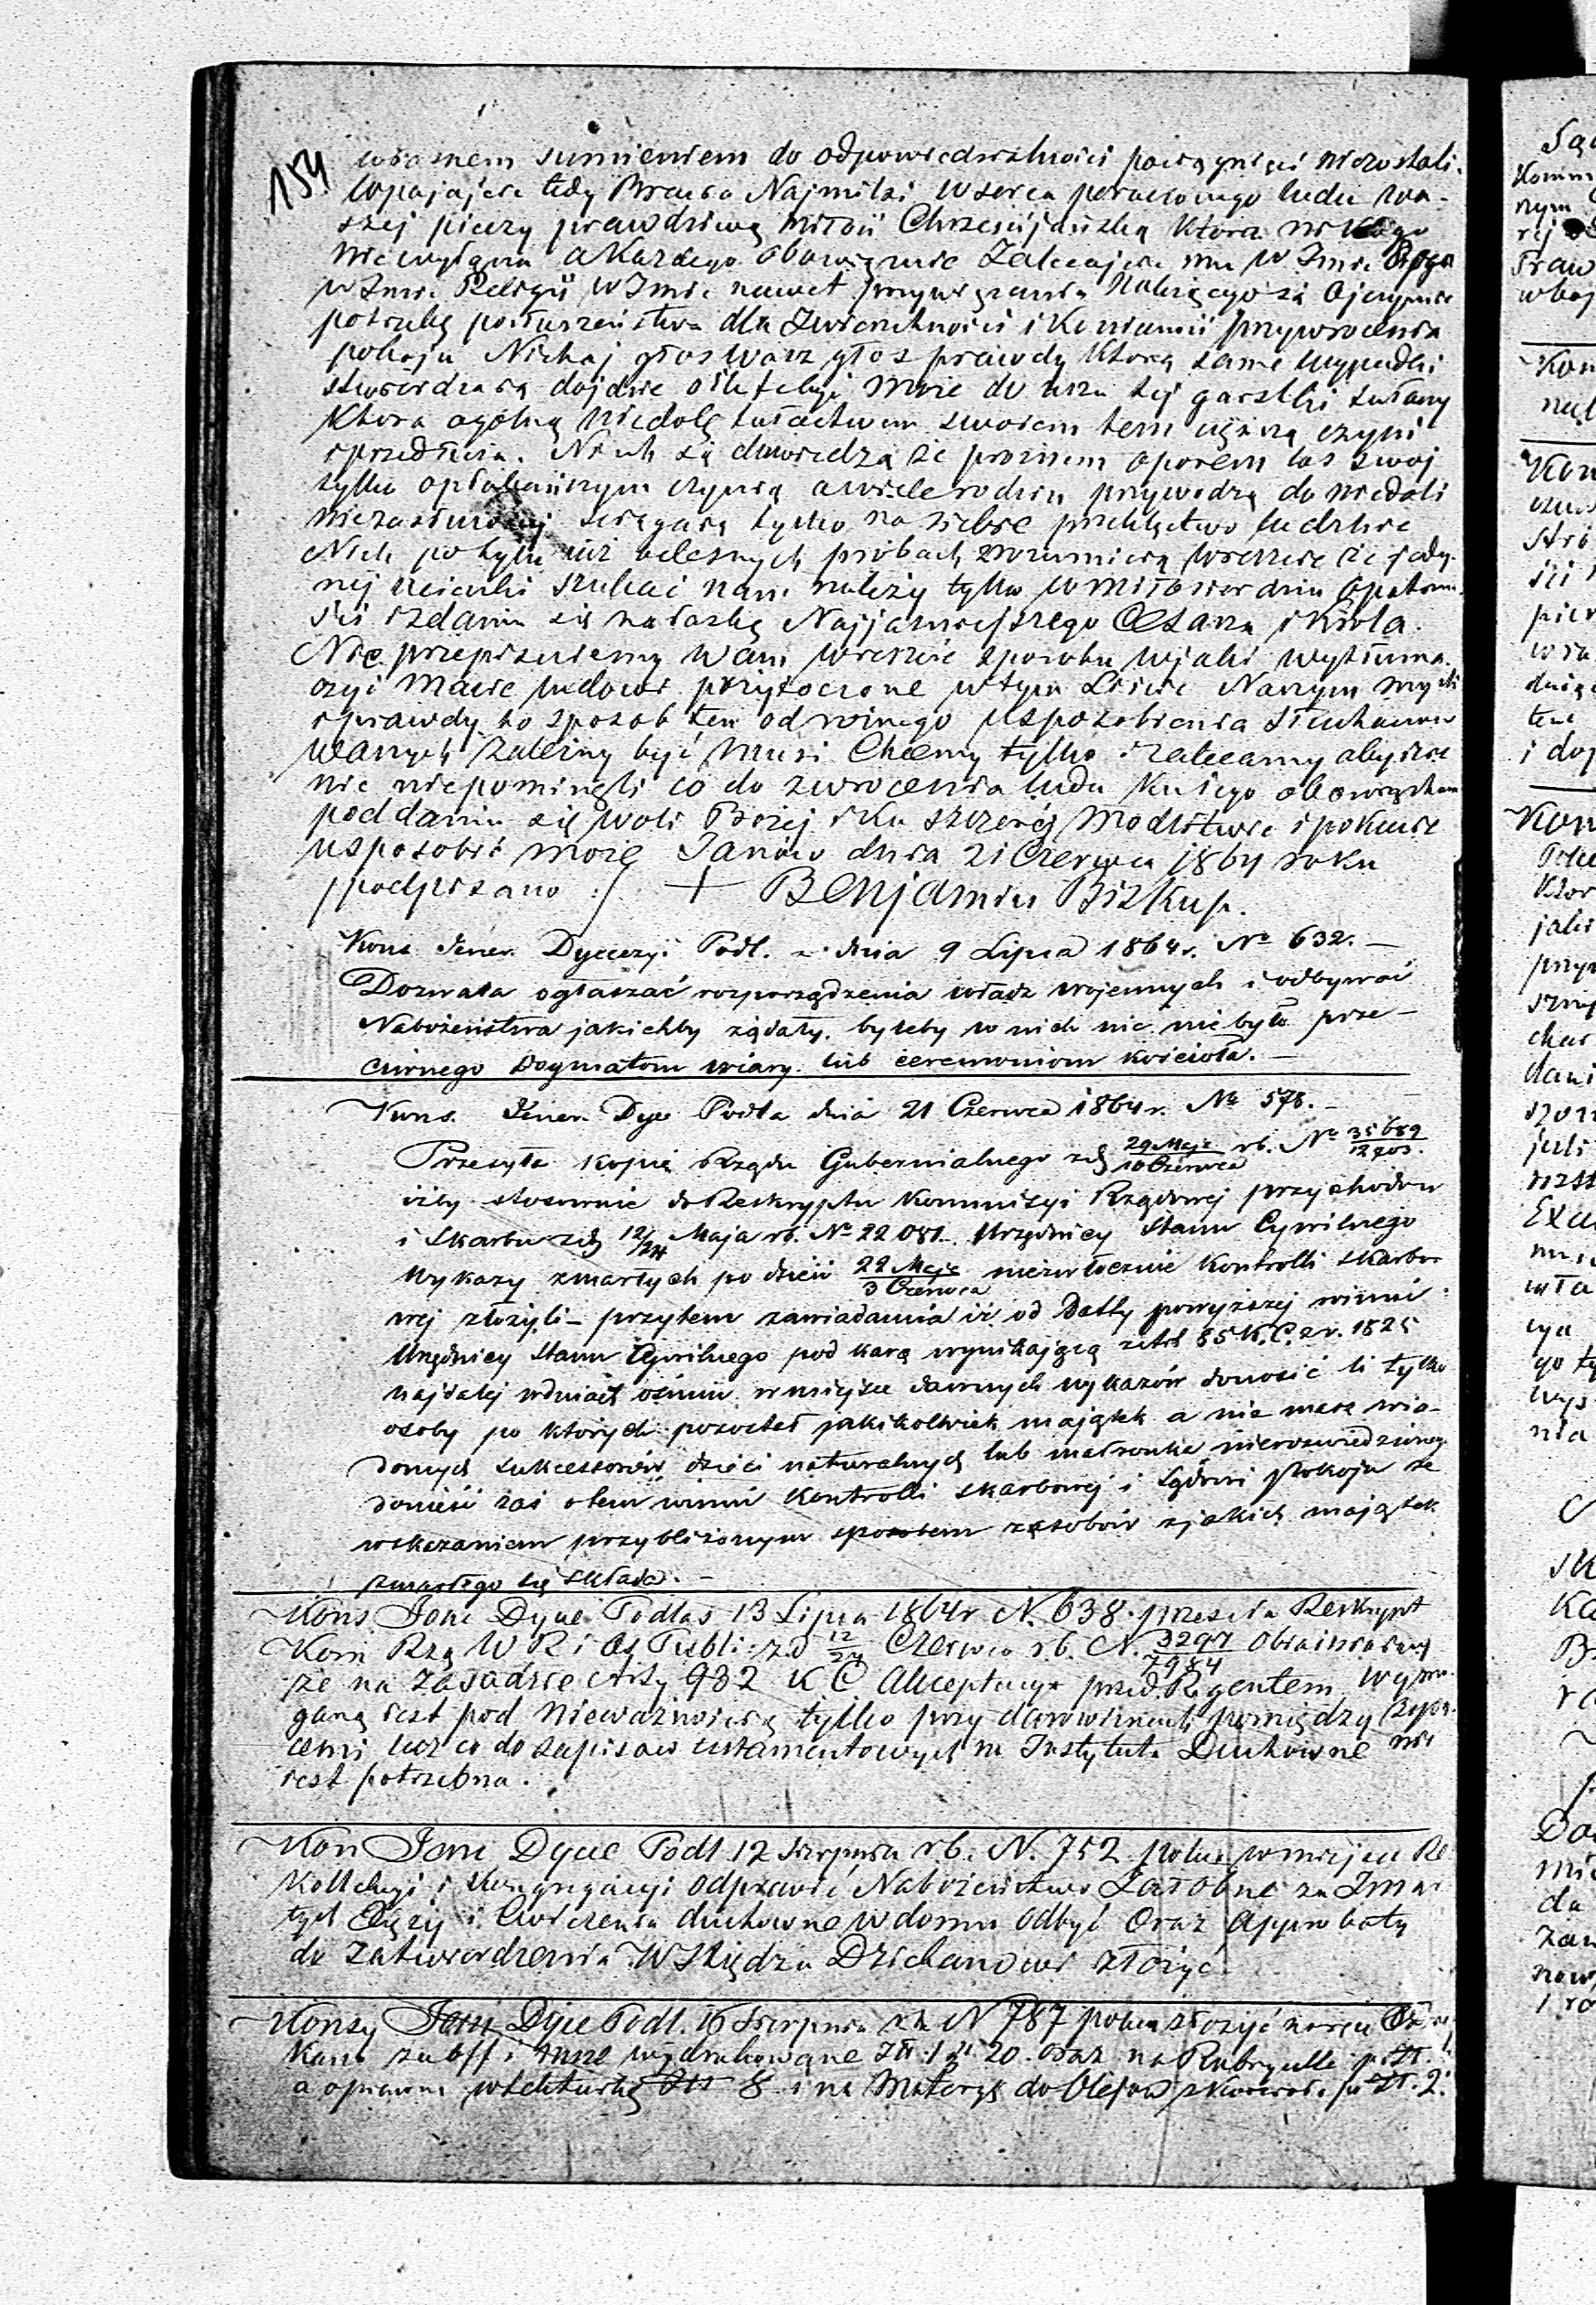 154
własnem sumieniem do odpowiedzialności pociągnięci niezostali.
Wpajajcie tedy Bracia Najmilsi w serca poruczonego ludu wa-
szej pieczy prawdziwą miłość Chrześcijańską która nikogo
niewyłącza a każdego obowiązuie Zalecajcie mu w Imie Boga
w Imie Religii w Imie nawet przywiązania Należącego się Ojczyznie
potrzebę posłuszeństwa dla Zwierzchności i Konieczność przywrócenia
pokoju Niechaj głos wasz głos prawdy którą same wypadki
stwierdzają dojdzie do uszu tej garstki
Która ogólną niedolę tułactwem swoiem tem cięższą czyni
i przedłuża. Niech się dowiedzą że prożnem oporem los swoj
tylko opłakańszym czynią a wiele rodzin przywodzą do niedoli
niezasłużonej ściągają tylko na siebie przeklęctwo ludzkie
Niech po tylu już bolesnych próbach zrozumieią wreszcie że jedy-
nej ucieczki szukać nam należy tylko w miłosierdziu Opatrzno-
ści i zdaniu się na łaskę Najjasniejszego Cesarza i Króla.
Nie przepisuiemy Wam wreszcie sposobu w jaki wytłuma-
czyć macie ludowi przytoczone w tym Liście Naszym myśli
i prawdy bo sposob ten od rożnego usposobienia słuchaczow
waszych zależny być musi Chcemy tylko i zalecamy abyście
nic niepominęli co do zwrocenia ludu ku iego obowiązkom
poddaniu się woli Bożej i ku szczeréj Modlitwie i pokucie
usposobić może Janów dnia 21 Czerwca 1864 roku
podpisano :/ + Benjamin Biskup.
Kons Jener. Dyecezyi Podl. z dnia 9 Lipca 1864 r. Nº 632. —
Dozwala ogłaszać rozporządzenia władz wojennych i odbywać
Nabożeństwa jakichby żądały. byleby w nich nic nie było prze-
ciwnego Dogmatom wiary lub ceremoniom kościoła. —
Kons. Jener. Dye Podla dnia 21 Czerwca 1864 r. Nº 578. —
Przesyła kopię Rządu Gubernialnego z d 29 Maja/10 Czerwca rb. Nº 35689/12903.
iżby stosownie do Reskryptu Kommissyi Rządowej przychodow
i Skarbu z d 12/24 Maja rb. Nº 22081. Urzędnicy Stanu Cywilnego
wykazy zmarłych po dzień 22 Maja/3 Czerwca niezwłocznie Kontrolli skarbo-
wej złożyli – przytem zawiadamia iż od Datty powyższej winni
Urzędnicy Stanu Cywilnego pod karą wynikającą z Art 85 K.C. z r. 1825
najdalej w dniach ośmiu w miejsce dawnych wykazów donosić li tylko
osoby po których pozostał jakikolwiek majątek a nie masz wia-
domych sukcessorów dzieci naturalnych lub małżonka nierozwiedzionego
donieść zaś o tem winni Kontrolli skarbowej i Sądowi Pokoju ze
wskazaniem przybliżonym sposobem zasobów z jakich majątek
zmarłego się składa. —
Kons Jene Dyec Podlas 13 Lipca 1864 r N. 638. przesyła Reskrypt
Kom Rzą W R i Oś Publi. z d 12/24 Czerwca r.b. N. 3297/7984 obiaśniaiący
że na zasadzie Arty 932 K C Akceptacya przed Regentem wyma-
ganą iest pod nieważnością tylko przy darowiznach pomiędzy żyją-
cemi lecz co do zapisow testamentowych na Instytuta Duchowne nie
iest potrzebna.
Kon Jene Dyec Podl 12 Sierpnia r.b. N. 752 poleca w miejscu Re-
kollekcyi i Kongregacyi odprawić Nabożeństwo Żałobne za Zmar-
łych Xięży i Ćwiczenia duchowne w domu odbyć Oraz Approbaty
do Zatwierdzenia W Xiędzu Dziekanowi złożyć.
Konsy Jene Dyec Podl. 16 Sierpnia r.b. N 787 poleca złożyć na ręce
za i wydrukowane zł. 1 g 20. oraz na Rubrycelle zł.
a oprawne w tekturkę 8. i na Materye do Olejow po zł. 2.